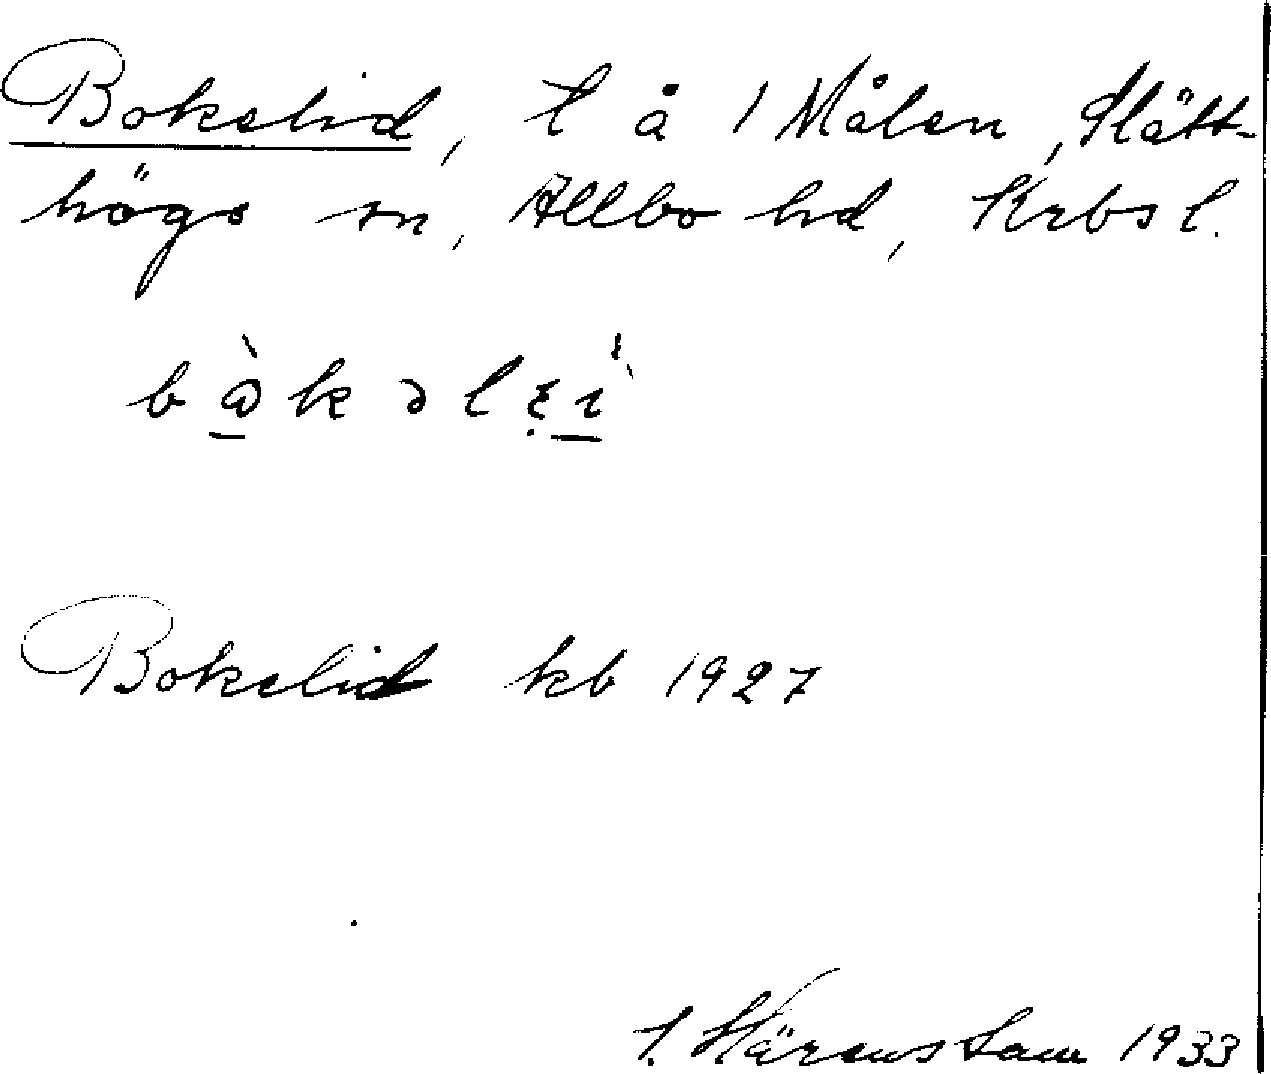 Bokelid, l å 1 Målen, Slätt-
högs sn, Allbo hd, Krbs l.
bὼ̲kəlẹi̲
Bokelid kb 1927
Härenstam 1933